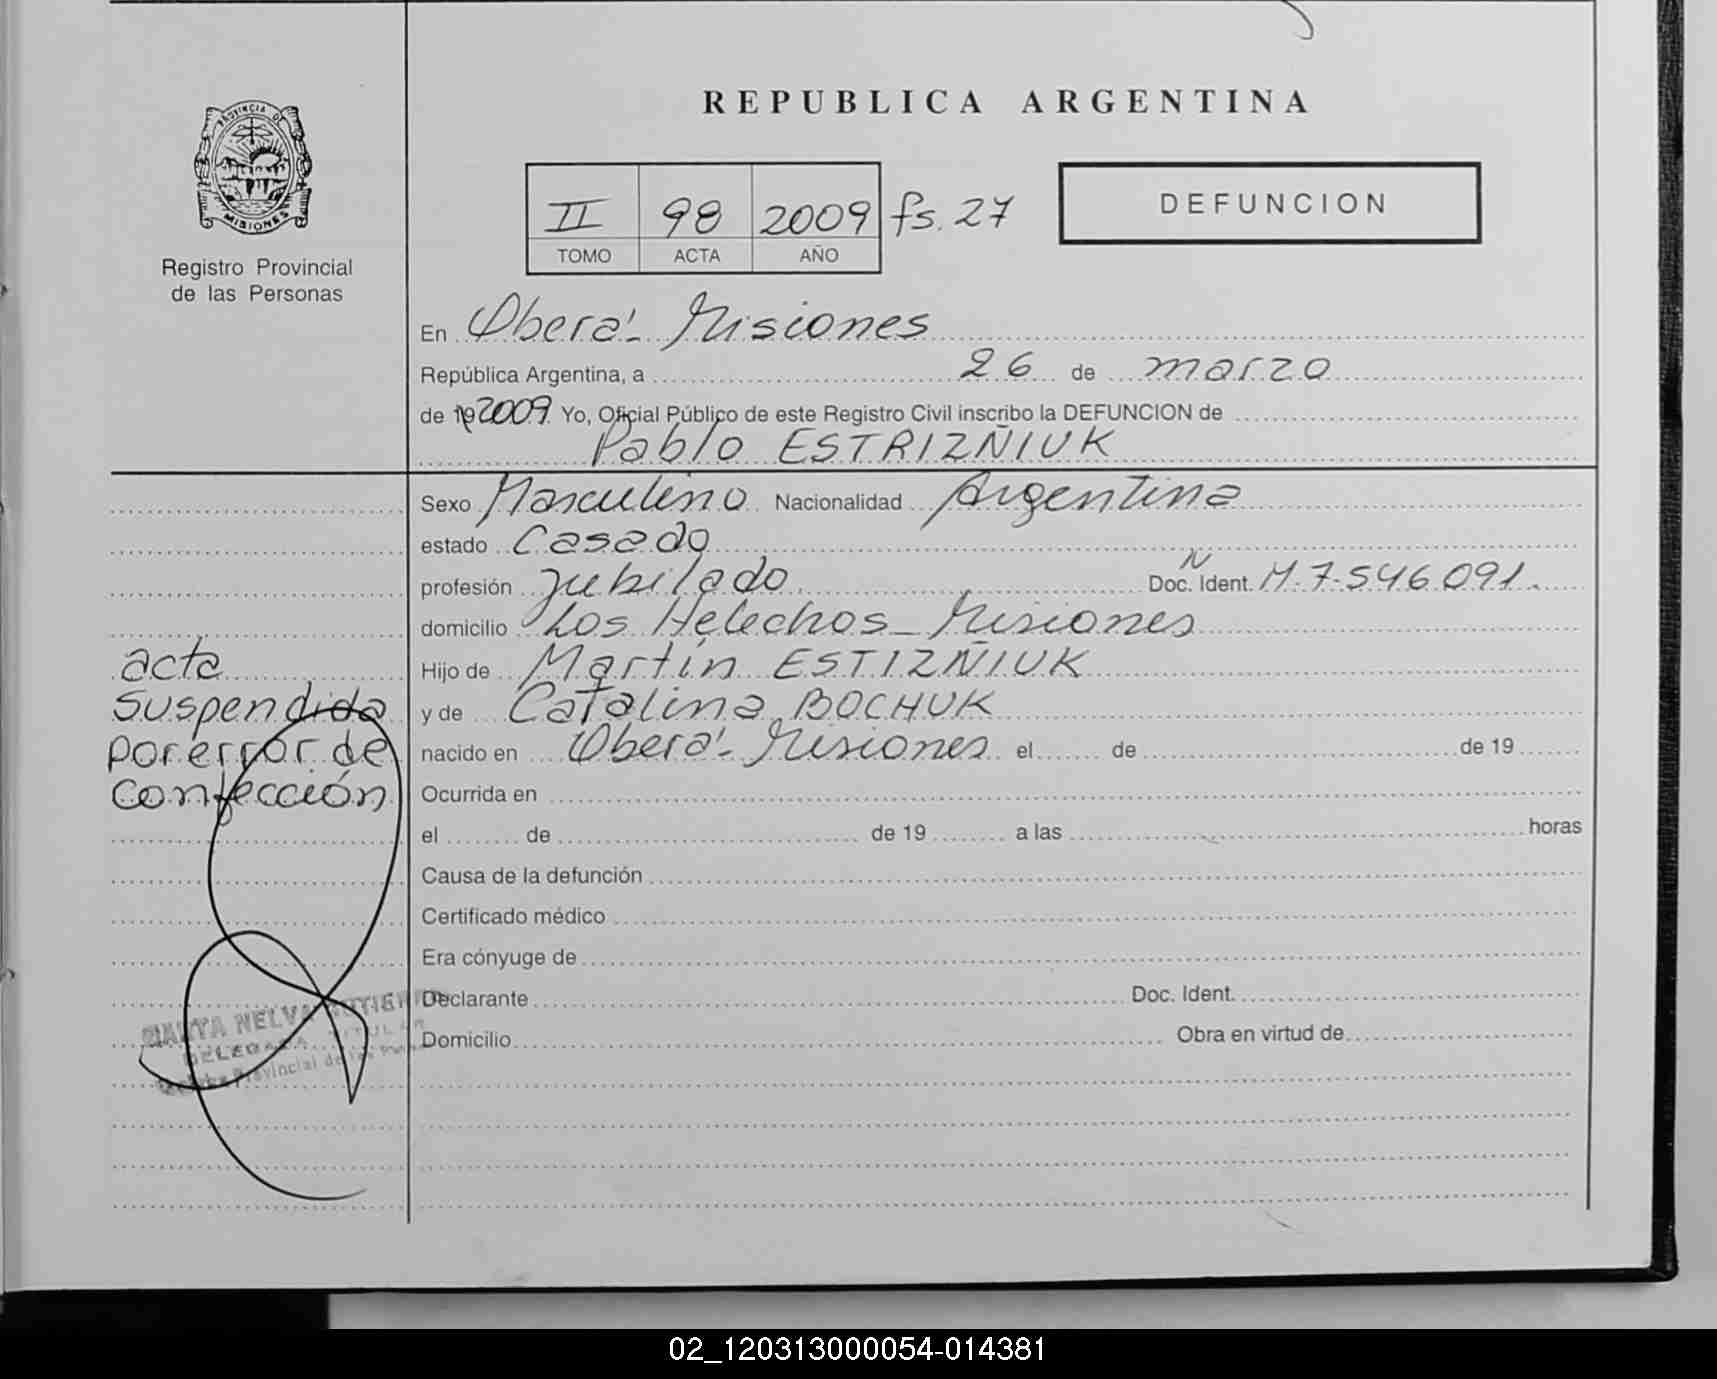 REPUBLICA ARGENTINA
PROVINCIA DE
MISIONES
Registro Provincial
de las Personas
II 98 2009 fs. 27
TOMO ACTA AÑO
DEFUNCION
En Oberá - Misiones
República Argentina, a 26 de marzo
de 19 2009 Yo, Oficial Público de este Registro Civil inscribo la DEFUNCION de
Pablo ESTRIZÑIUK
Sexo Masculino Nacionalidad Argentina
estado Casado
profesión Jubilado Doc. Ident. N M. 7.546.091.
domicilio Los Helechos - Misiones
Hijo de Martín ESTIZÑIUK
y de Catalina BOCHUK
nacido en Oberá - Misiones el de de 19
Ocurrida en
el de de 19 a las horas
Causa de la defunción
Certificado médico
Era cónyuge de
Declarante Doc. Ident.
Domicilio Obra en virtud de
acta
suspendida
por error de
confección
NELVA
Provincial de las
02_120313000054-014381